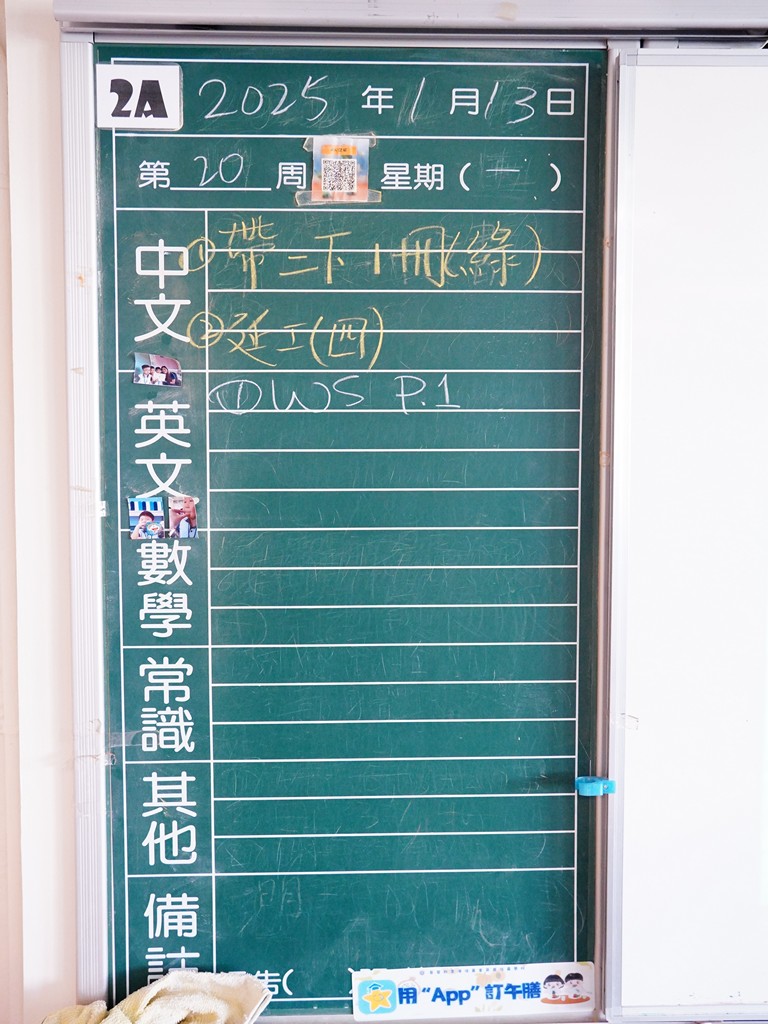 2A 2025年1月13日
第20周 星期(一)
中文
①帶二下1冊(綠)
②延工(四)
英文
①WS P.1
數學
常識
其他
備註
告( )
用“App”訂午膳